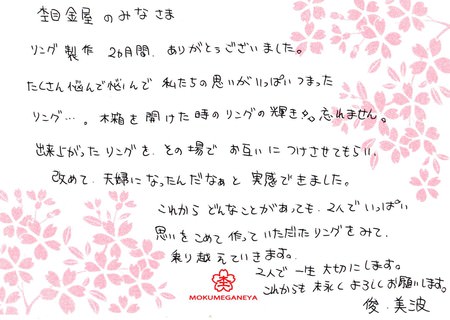 杢目金屋のみなさま
リング製作 2ヵ月間、ありがとうございました。
たくさん悩んで悩んで 私たちの思いがいっぱいつまった
リング…。木箱を開けた時のリングの輝き忘れません。
出来上がったリングを、その場で お互いにつけさせてもらい、
改めて、夫婦になったんだなぁと 実感できました。
これから どんなことがあっても、2人で いっぱい
思いをこめて作っていただいたリングをみて、
乗り越えていきます。
2人で一生大切にします。
これからも末永くよろしくお願いします。
俊・美波
MOKUMEGANEYA